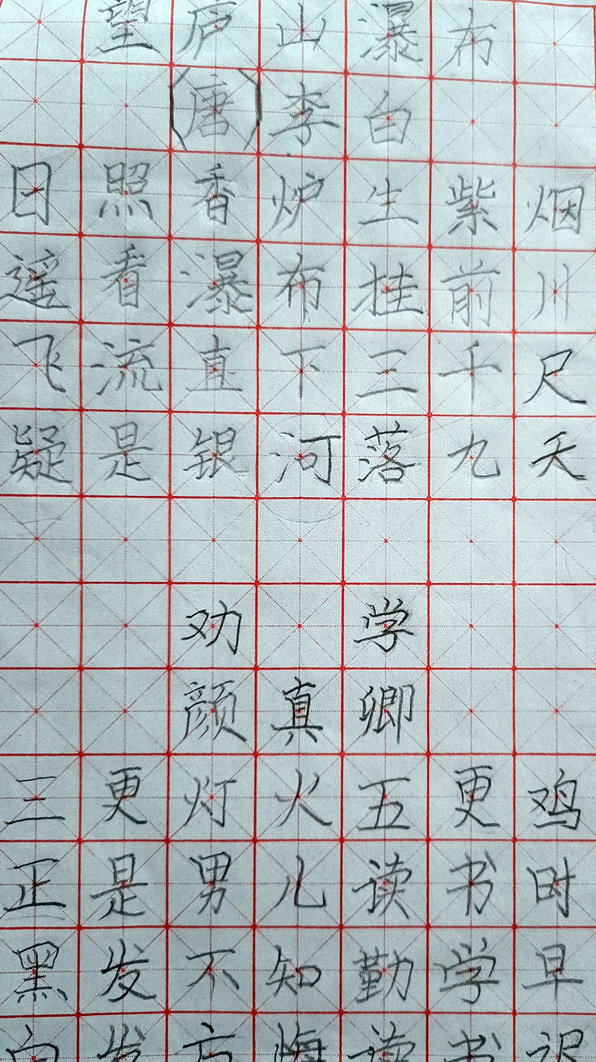 望庐山瀑布
(唐)李白
日照香炉生紫烟
遥看瀑布挂前川
飞流直下三千尺
疑是银河落九天
劝学
颜真卿
三更灯火五更鸡
正是男儿读书时
黑发不知勤学早
白发方悔读书迟